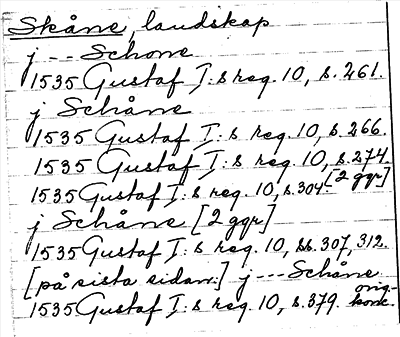 Skåne, landskap
j --- Schone
1535 Gustaf I:s reg. 10, s. 261.
j Schåne
1535 Gustaf I:s reg. 10, s. 266.
1535 Gustaf I:s reg. 10, s. 274.
1535 Gustaf I:s reg. 10, s. 304. [2 ggr]
j Schåne [2 ggr]
1535 Gustaf I:s reg. 10, ss. 307, 312.
[på sista sidan:] j --- Schåne
1535 Gustaf I:s reg. 10, s. 379. orig.-
konc.